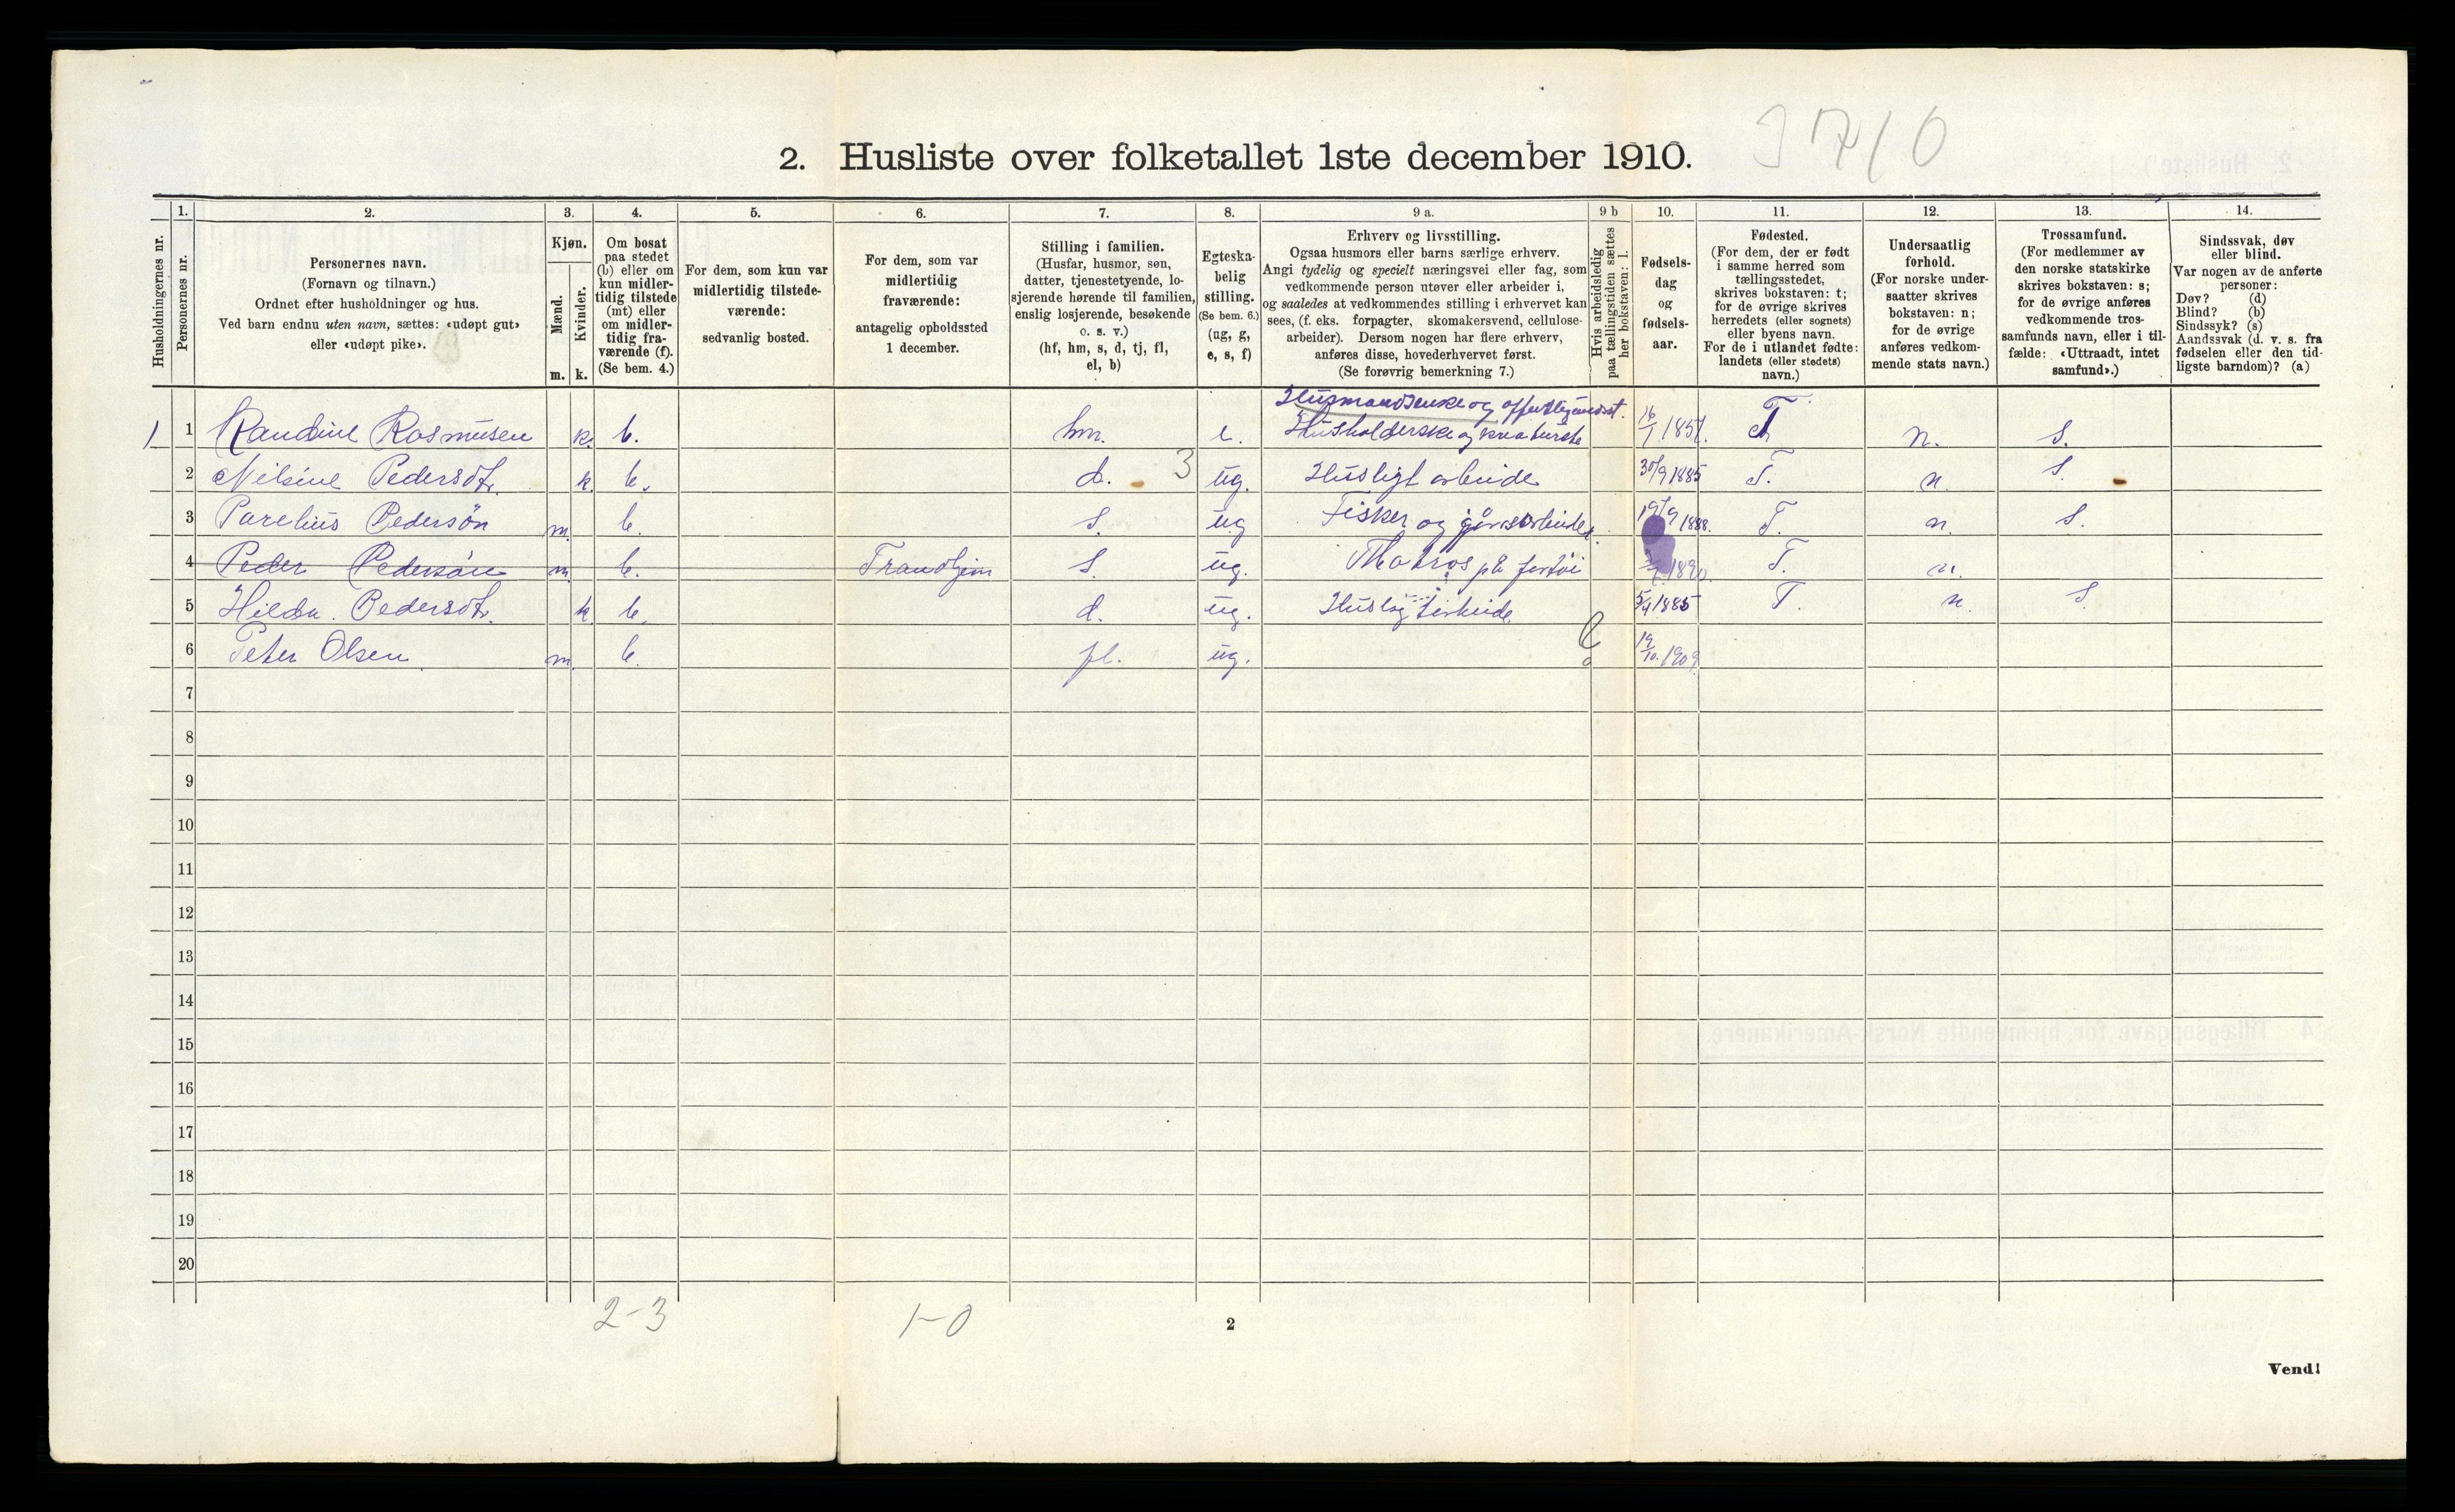 3710
2. Husliste over folketallet 1ste december 1910.
Husholdningernes nr.
1.
Personernes nr.
2.
Personernes navn.
(Fornavn og tilnavn.)
Ordnet efter husholdninger og hus.
Ved barn endnu uten navn, sættes: «udøpt gut»
eller «udøpt pike».
3.
Kjøn.
Mænd.
Kvinder.
m. k.
4.
Om bosat
paa stedet
(b) eller om
kun midler-
tidig tilstede
(mt) eller
om midler-
tidig fra-
værende (f).
(Se bem. 4.)
5.
For dem, som kun var
midlertidig tilstede-
værende:
sedvanlig bosted.
6.
For dem, som var
midlertidig
fraværende:
antagelig opholdssted
1 december.
7.
Stilling i familien.
(Husfar, husmor, søn,
datter, tjenestetyende, lo-
sjerende hørende til familien,
enslig losjerende, besøkende
o. s. v.)
(hf, hm, s, d, tj, fl,
el, b)
8.
Egteska-
belig
stilling.
(Se bem. 6.)
(ug, g,
e, s, f)
9 a.
Erhverv og livsstilling.
Ogsaa husmors eller barns særlige erhverv.
Angi tydelig og specielt næringsvei eller fag, som
vedkommende person utøver eller arbeider i,
og saaledes at vedkommendes stilling i erhvervet kan
sees, (f. eks. forpagter, skomakersvend, cellulose-
arbeider). Dersom nogen har flere erhverv,
anføres disse, hovederhvervet først.
(Se forøvrig bemerkning 7.)
9 b
Hvis arbeidsledig
paa tællingstiden sættes
her bokstaven: l.
10.
Fødsels-
dag
og
fødsels-
aar.
11.
Fødested.
(For dem, der er født
i samme herred som
tællingsstedet,
skrives bokstaven: t;
for de øvrige skrives
herredets (eller sognets)
eller byens navn.
For de i utlandet fødte:
landets (eller stedets)
navn.)
12.
Undersaatlig
forhold.
(For norske under-
saatter skrives
bokstaven: n;
for de øvrige
anføres vedkom-
mende stats navn.)
13.
Trossamfund.
(For medlemmer av
den norske statskirke
skrives bokstaven: s;
for de øvrige anføres
vedkommende tros-
samfunds navn, eller i til-
fælde: «Uttraadt, intet
samfund».)
14.
Sindssvak, døv
eller blind.
Var nogen av de anførte
personer:
Døv? (d)
Blind? (b)
Sindssyk? (s)
Aandssvak (d. v. s. fra
fødselen eller den tid-
ligste barndom)? (a)
Husmandsenke og
1 1 Randine Rasmusen k. b. hm. e. Husholderske og 16/1 1851. T n. S.
2 Nilsine Pedersdtr. k. b. d. 3 ug. Husligt arbeide 30/9 1885 T. n. S.
3 Parelius Pedersøn m. b. s. ug Fisker og 19/9 1888. T. n. S.
4 Peder Pedersøn m. b. Trondhjem s. ug. Matros på fartöi 1890. T. n.
5 Hilda. Pedersdtr. k b. d. ug. Huslig arbeide 5/4 1885 T. n. S.
6 Peter Olsen m. b. pl. ug. 19/10. 1909.
7
8
9
10
11
12
13
14
15
16
17
18
19
20
2-3 1-0
2
Vend!